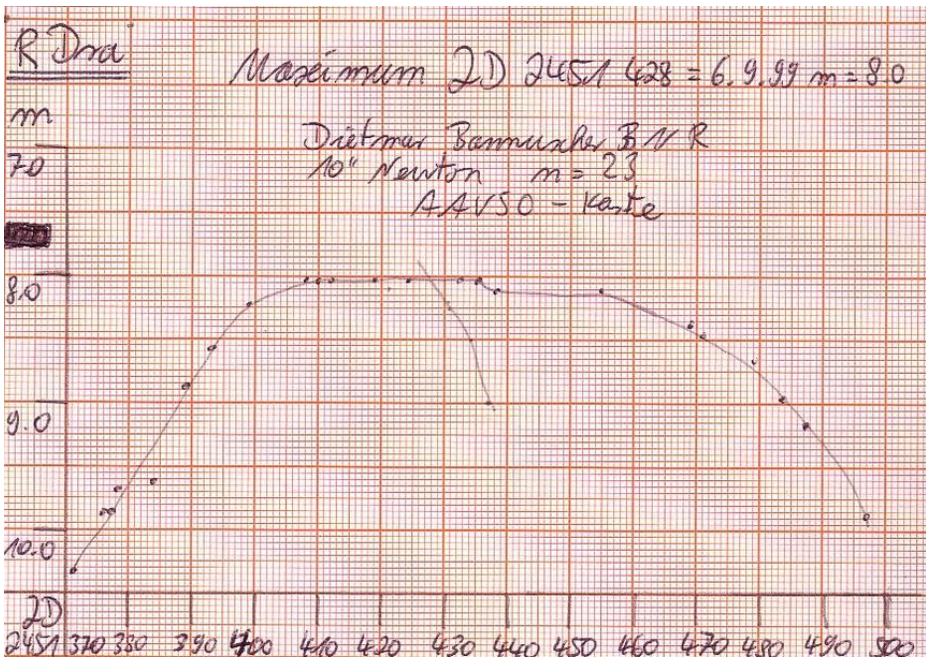 R Dra
Maximum JD 2451 428 = 6.9.99 m = 8.0
m
Dietmar Bannuscher BNR
7.0
10" Newton n = 23
AAVSO - Karte
8.0
9.0
10.0
JD
2451 370 380 390 400 410 420 430 440 450 460 470 480 490 500